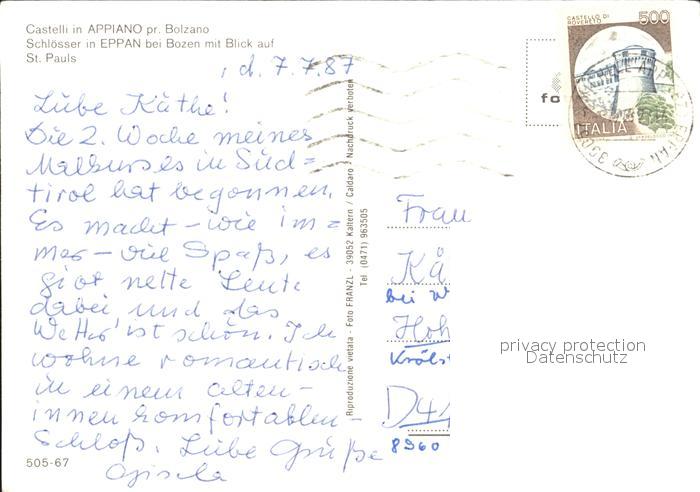 Castelli in APPIANO pr. Bolzano
Schlösser in EPPAN bei Bozen mit Blick auf
St. Pauls
, d. 7.7.87
Liebe Käthe!
Die 2. Woche meines
Malkurses in Süd=
tirol hat begonnen.
Es macht – wie im=
mer – viel Spaß, es
gibt nette Leute
dabei und das
Wetter ist schön. Ich
wohne romantisch
in einem alten –
innen komfortablen –
Schloß. Liebe Grüße
Gisela
505-67
Riproduzione vietata - Foto FRANZL - 39052 Kaltern / Caldaro - Nachdruck verboten
Tel (0471) 963505
fo
CASTELLO DI
ROVERETO
500
ITALIA
Frau
Kä
bei W
Hoh
D
8960
privacy protection
Datenschutz